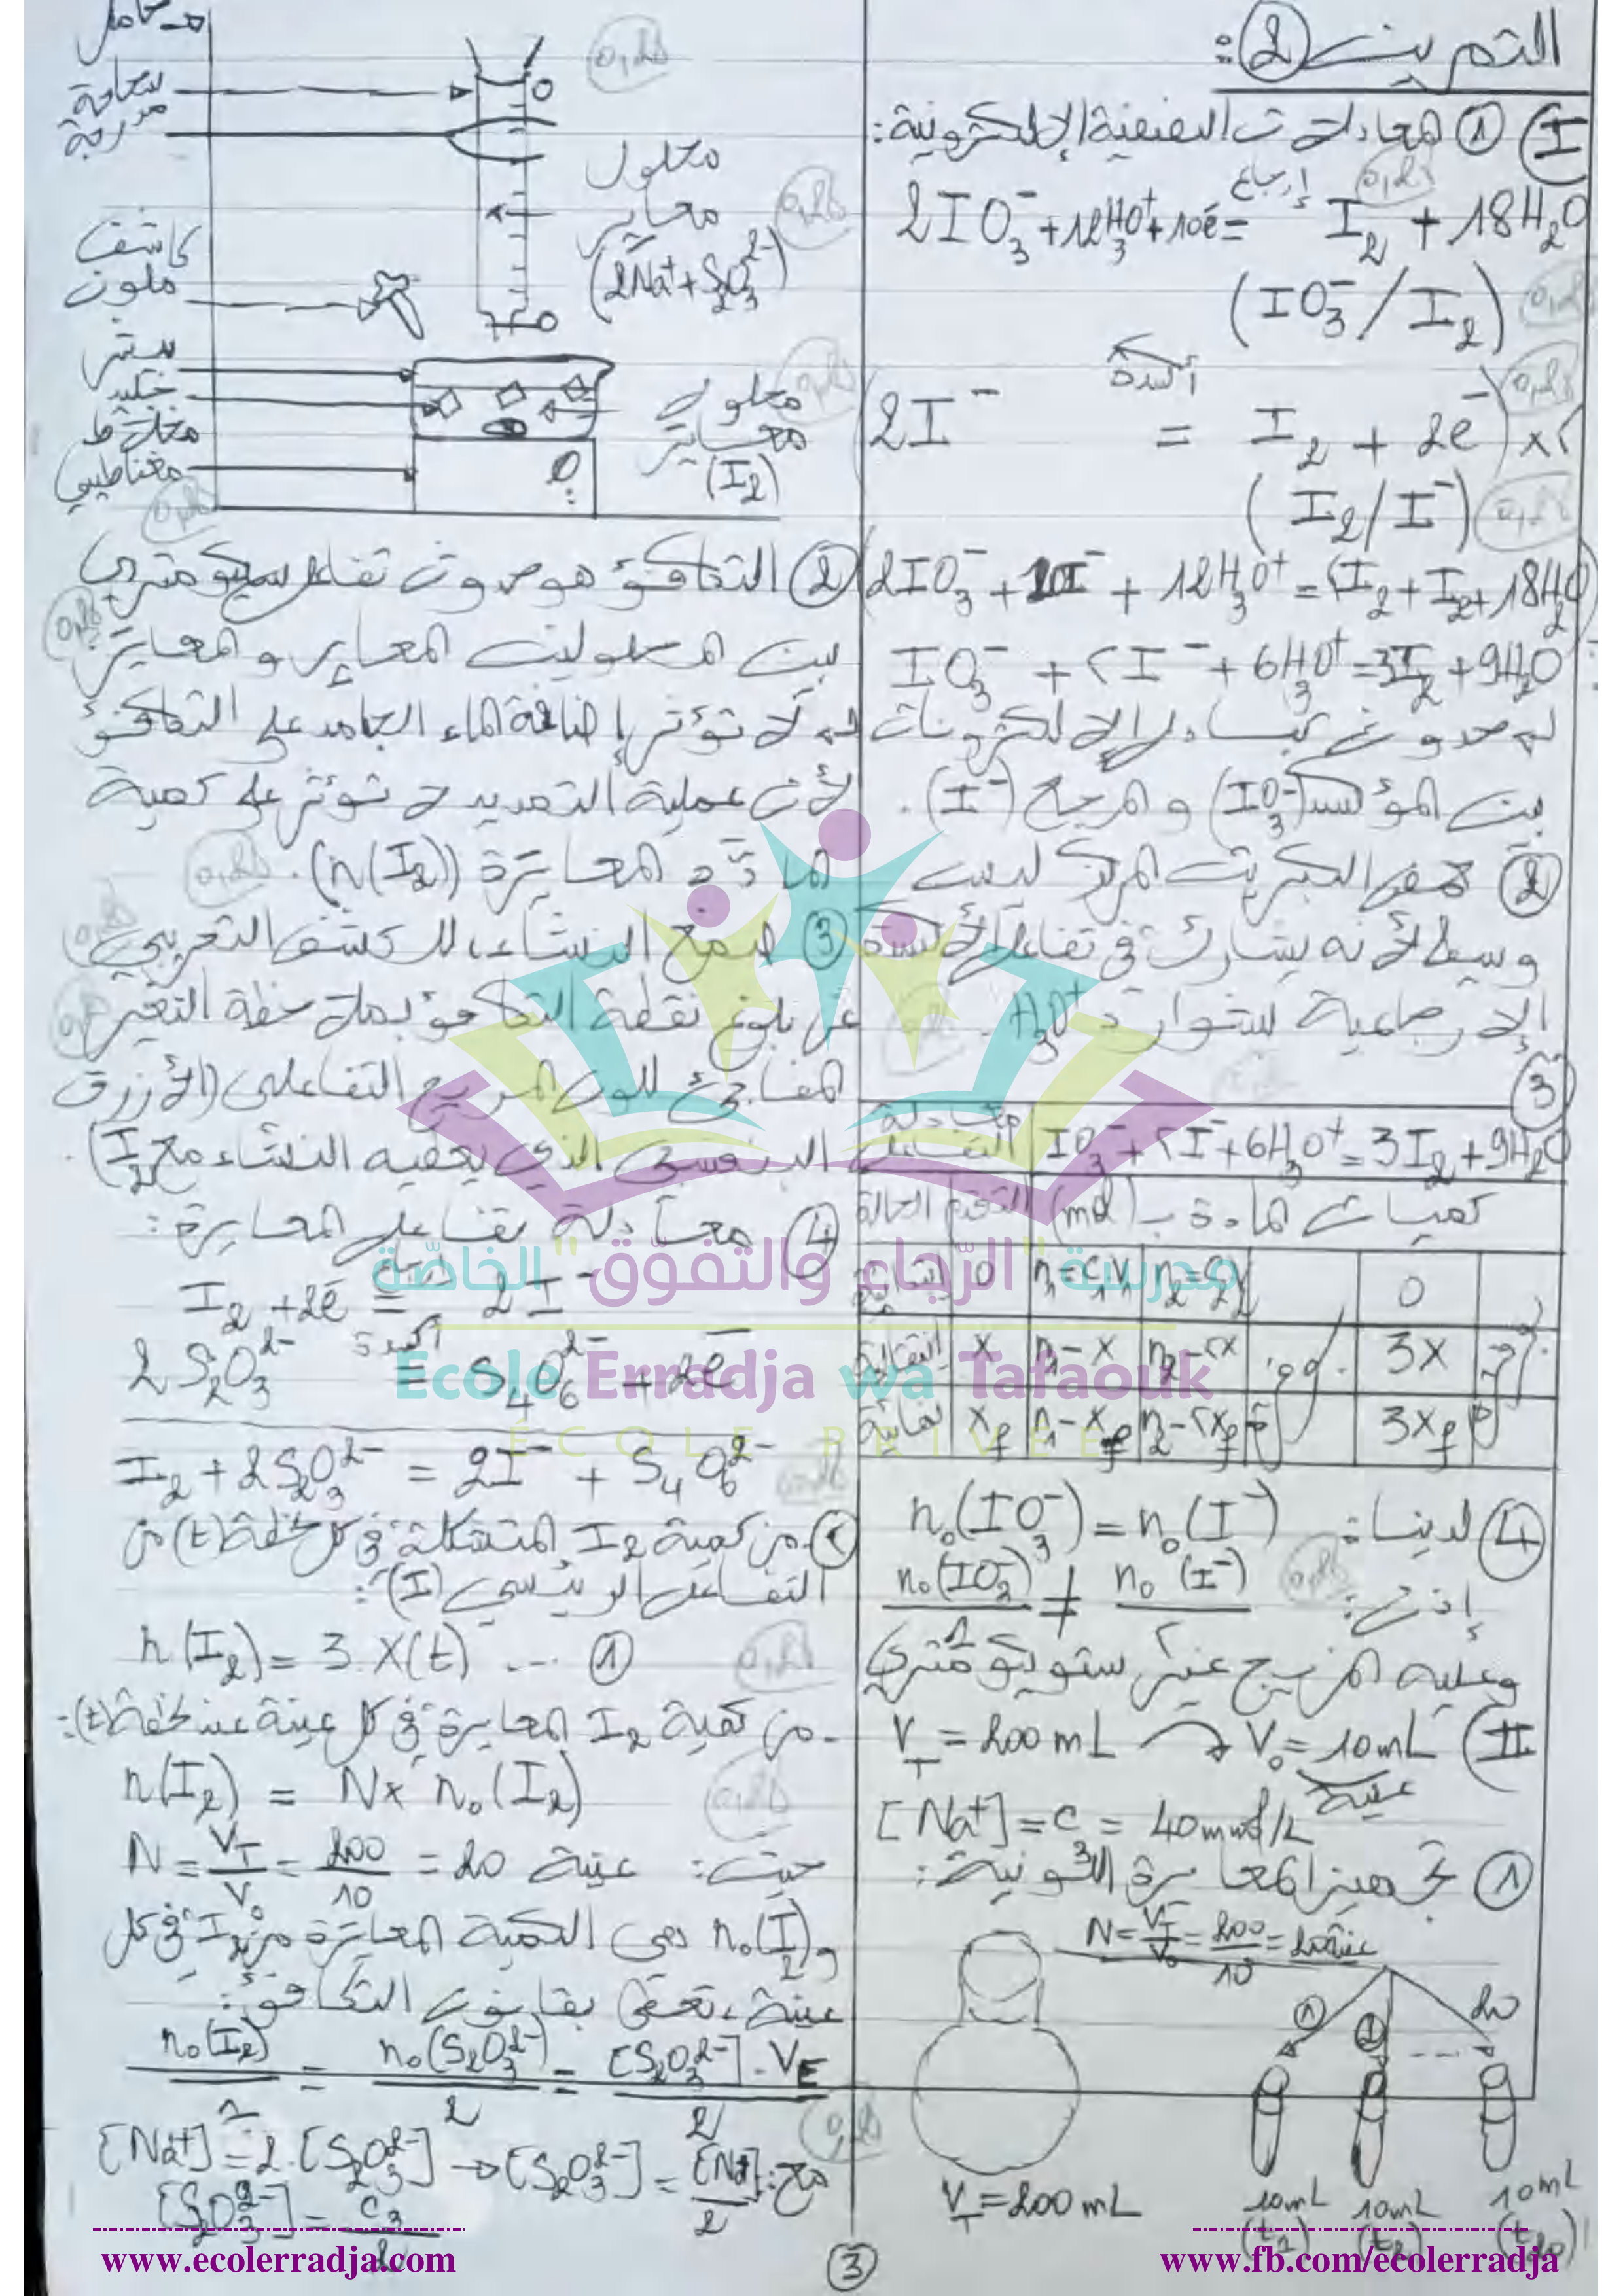 التمرين ②:
Ⅰ ① المعادلات النصفية الإلكترونية:
0,25
إرجاع
2IO₃⁻ + 12H₃O⁺ + 10é = I₂ + 18H₂O
(IO₃⁻/I₂)
0,25
أكسدة
0,25
(2I⁻ = I₂ + 2e⁻) x5
(I₂/I⁻)
0,25
2IO₃⁻ + 10I⁻ + 12H₃O⁺ = 5I₂ + I₂ + 18H₂O
IO₃⁻ + 5I⁻ + 6H₃O⁺ = 3I₂ + 9H₂O
لـ حدوث تبادل الإلكترونات
بين المؤكسد (IO₃⁻) والمرجع (I⁻).
② حمض الكبريت المركز ليس
وسيط لأنه يشارك في تفاعل الأكسدة
الإرجاعية بشوارد H₃O⁺.
③
معادلة التفاعل IO₃⁻ + 5I⁻ + 6H₃O⁺ = 3I₂ + 9H₂O
الحالة التقدم كميات المادة بـ (mol)
ابتدائية 0 n₁=C₁V₁ n₂=C₂V₂ 0
انتقالية x n₁-x n₂-5x 3x
نهائية xf n₁-xf n₂-5xf 3xf
بوفرة
④ لدينا: n₀(IO₃⁻) = n₀(I⁻)
إذن: n₀(IO₃⁻)/1 ≠ n₀(I⁻)/5
0,25
وعليه المزيج غير ستوكيومتري
Ⅱ V_T = 200mL → V₀ = 10mL
عينة
[Na⁺] = C₃ = 40mmol/L
① تجهيز المعايرة اللونية:
N = V_T/V₀ = 200/10 = 20 عينة
① ② 20
V_T = 200mL
10mL 10mL 10mL
(t₁) (t₂) (t₂₀)
حامل
سحاحة
مدرجة
0,25
0
محلول
معاير
(2Na⁺ + S₂O₃²⁻)
0,25
كاشف
ملون
بيشر
جليد
مخلاط
مغناطيسي
محلول
معاير
(I₂)
0,25
② التكافؤ هو حدوث تفاعل ستيكيومتري
بين المحلولين المعاير والمعايَر
0,25
لا تؤثر إضافة الماء الجامد على التكافؤ
لأن عملية التمديد لا تؤثر على كمية
المادة المعايرة (n(I₂)).
0,25
③ صمغ النشاء، للكشف التجريبي
عن بلوغ نقطة التكافؤ بملاحظة التغير
المفاجئ للون المزيج التفاعلي (الأزرق
البنفسجي الذي يعطيه النشاء مع I₂).
④ معادلة تفاعل المعايرة:
I₂ + 2é = 2I⁻
أكسدة
2S₂O₃²⁻ = S₄O₆²⁻ + 2é
I₂ + 2S₂O₃²⁻ = 2I⁻ + S₄O₆²⁻
⑤ - من كمية I₂ المتشكلة في كل لحظة (t) من
التفاعل الرئيسي (I):
n(I₂) = 3.x(t) ... ①
0,25
- من كمية I₂ المعايرة في كل عينة عند لحظة (t):
n(I₂) = N x n₀(I₂)
0,25
حيث: N = V_T/V₀ = 200/10 = 20 عينة
و n₀(I₂) هي الكمية المعايرة من I₂ في كل
عينة، تعطى بقانون التكافؤ:
n₀(I₂)/1 = n₀(S₂O₃²⁻)/2 = [S₂O₃²⁻].V_E/2
0,25
مع: [Na⁺] = 2.[S₂O₃²⁻] → [S₂O₃²⁻] = [Na⁺]/2
[S₂O₃²⁻] = C₃/2
مدرسة "الرّجاء والتفوّق" الخاصّة
Ecole Erradja wa Tafaouk
ÉCOLE PRIVÉE
www.ecolerradja.com
③
www.fb.com/ecolerradja